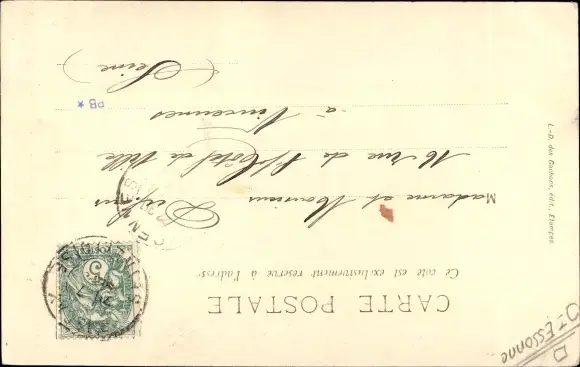 CARTE POSTALE
Ce côté est exclusivement réservé à l'adresse
Madame et Monsieur
16 rue de l'Hôtel de Ville
à Vincennes
(Seine)
PB *
L.-D. des Gachons, édit., Etampes
D
Essonne